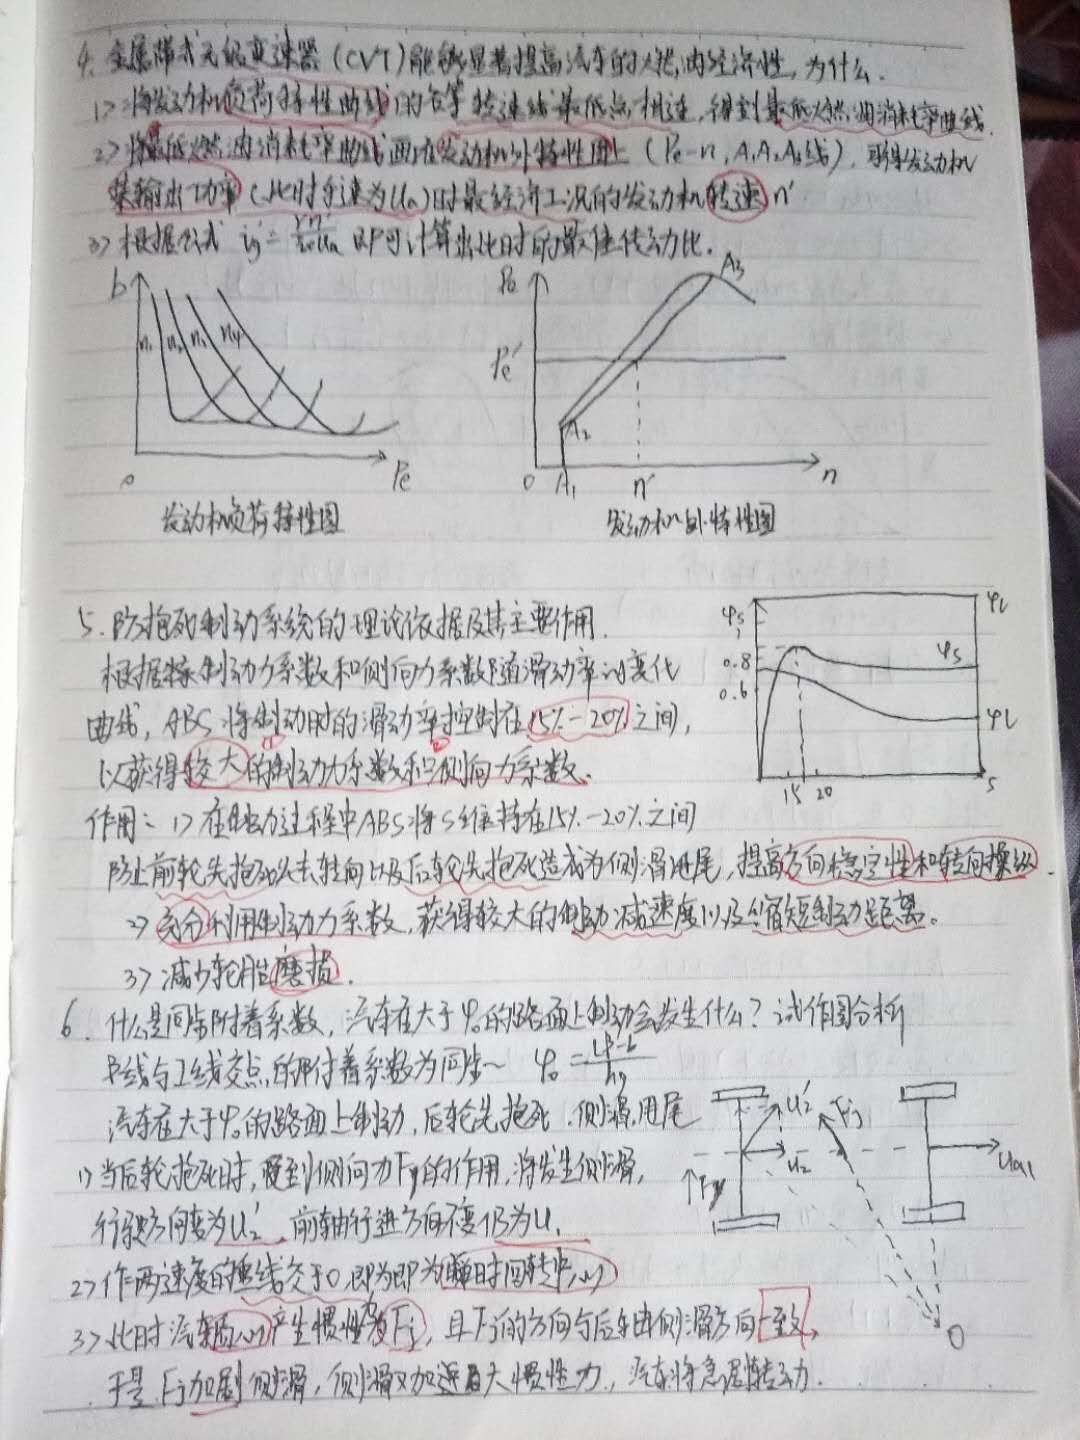 4. 金属带式无级变速器(CVT)能够显著提高汽车的燃油经济性,为什么.
1> 将发动机负荷特性曲线的各等转速线最低点相连,得到最低燃油消耗率曲线.
2> 将最低燃油消耗率曲线画在发动机外特性图上(Pe-n, A1A2A3线),可得发动机
某输出功率(此时车速为Ua)时最经济工况的发动机转速n'
3> 根据公式 即可计算出此时的最佳传动比.
b
n1 n2 n3 n4
0
Pe
发动机负荷特性图
Pe
A3
Pe'
A2
0 A1 n' n
发动机外特性图
5. 防抱死制动系统的理论依据及其主要作用.
根据 制动力系数和侧向力系数随滑动率的变化
曲线, ABS将制动时的滑动率控制在15%-20%之间,
以获得较大的制动力系数和侧向力系数.
φs
φl
0.8
φs
0.6
φl
15 20
s
作用: 1> 在制动过程中ABS将S维持在15%-20%之间
防止前轮先抱死失去转向以及后轮先抱死造成为侧滑甩尾,提高方向稳定性和转向操纵.
2> 充分利用制动力系数,获得较大的制动减速度以及缩短制动距离。
3> 减少轮胎磨损.
6. 什么是同步附着系数,汽车在大于φ0的路面上制动会发生什么?试作图分析
β线与I线交点的附着系数为同步~ φ0 = Lβ-b/hg
汽车在大于φ0的路面上制动,后轮先抱死.侧滑,甩尾
1) 当后轮抱死时,受到侧向力Fy的作用,将发生侧滑,
行驶方向变为U2',前轴行进方向不变仍为U1
2> 作两速度的垂线交于O,即为即为瞬时回转中心
3> 此时汽车 产生惯性力为Fj,且Fj的方向与后轴侧滑方向一致,
于是Fj加剧侧滑,侧滑又加 大惯性力,汽车将急剧转动.
U2'
Fj
U2
Fy
O